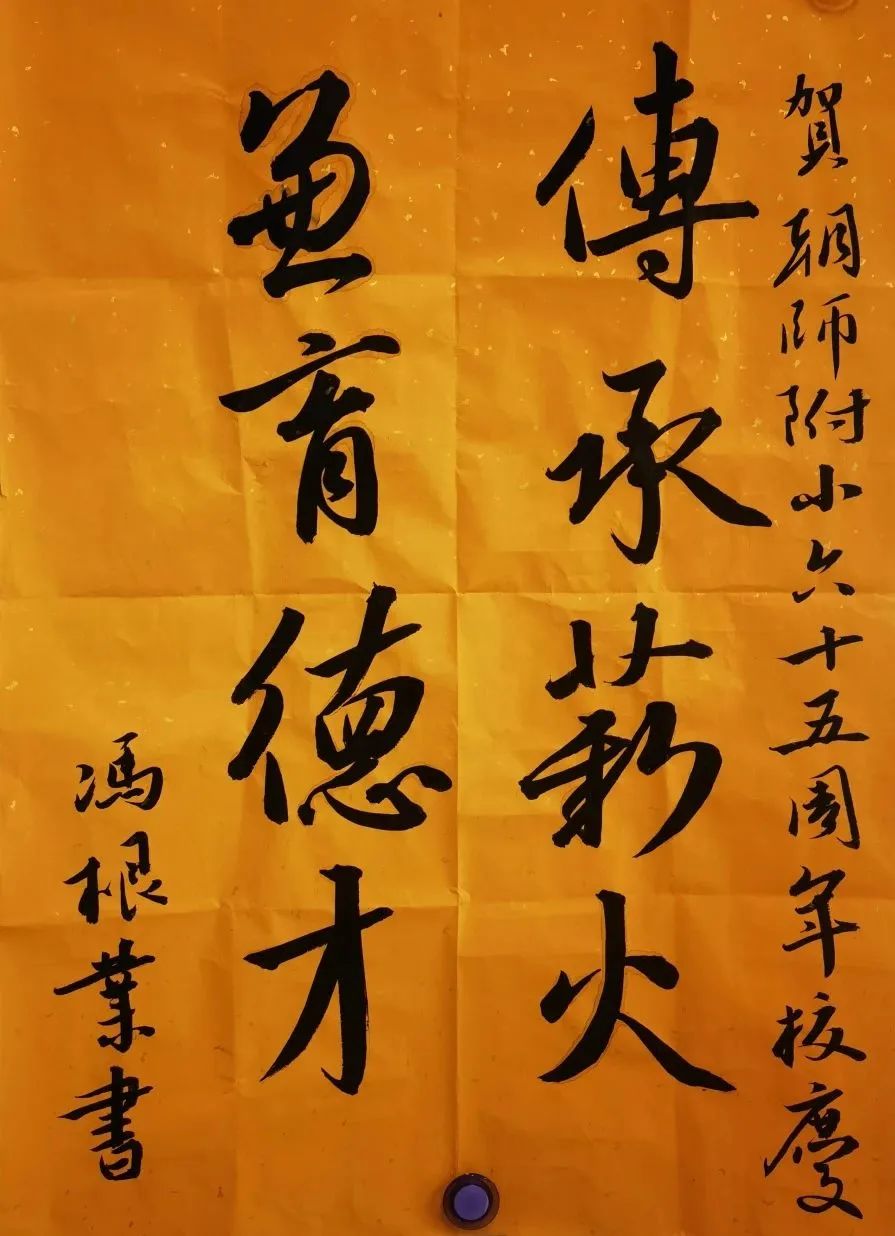 賀朝師附小六十五周年校慶
傳承薪火
兼育德才
馮根業書